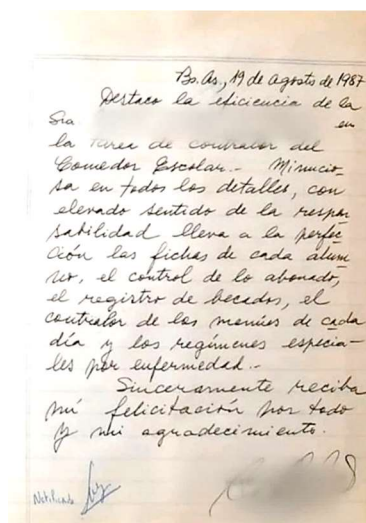 Bs. As., 19 de agosto de 1987
Destaco la eficiencia de la
Sra en
la tarea de contralor del
Comedor Escolar.- Minucio-
sa en todos los detalles, con
elevado sentido de la respon
sabilidad lleva a la perfec-
ción las fichas de cada alum
no, el control de lo abonado,
el registro de becados, el
contralor de los menúes de cada
día y los regímenes especia-
les por enfermedad.-
Sinceramente reciba
mi felicitación por todo
y mi agradecimiento.
Notificada